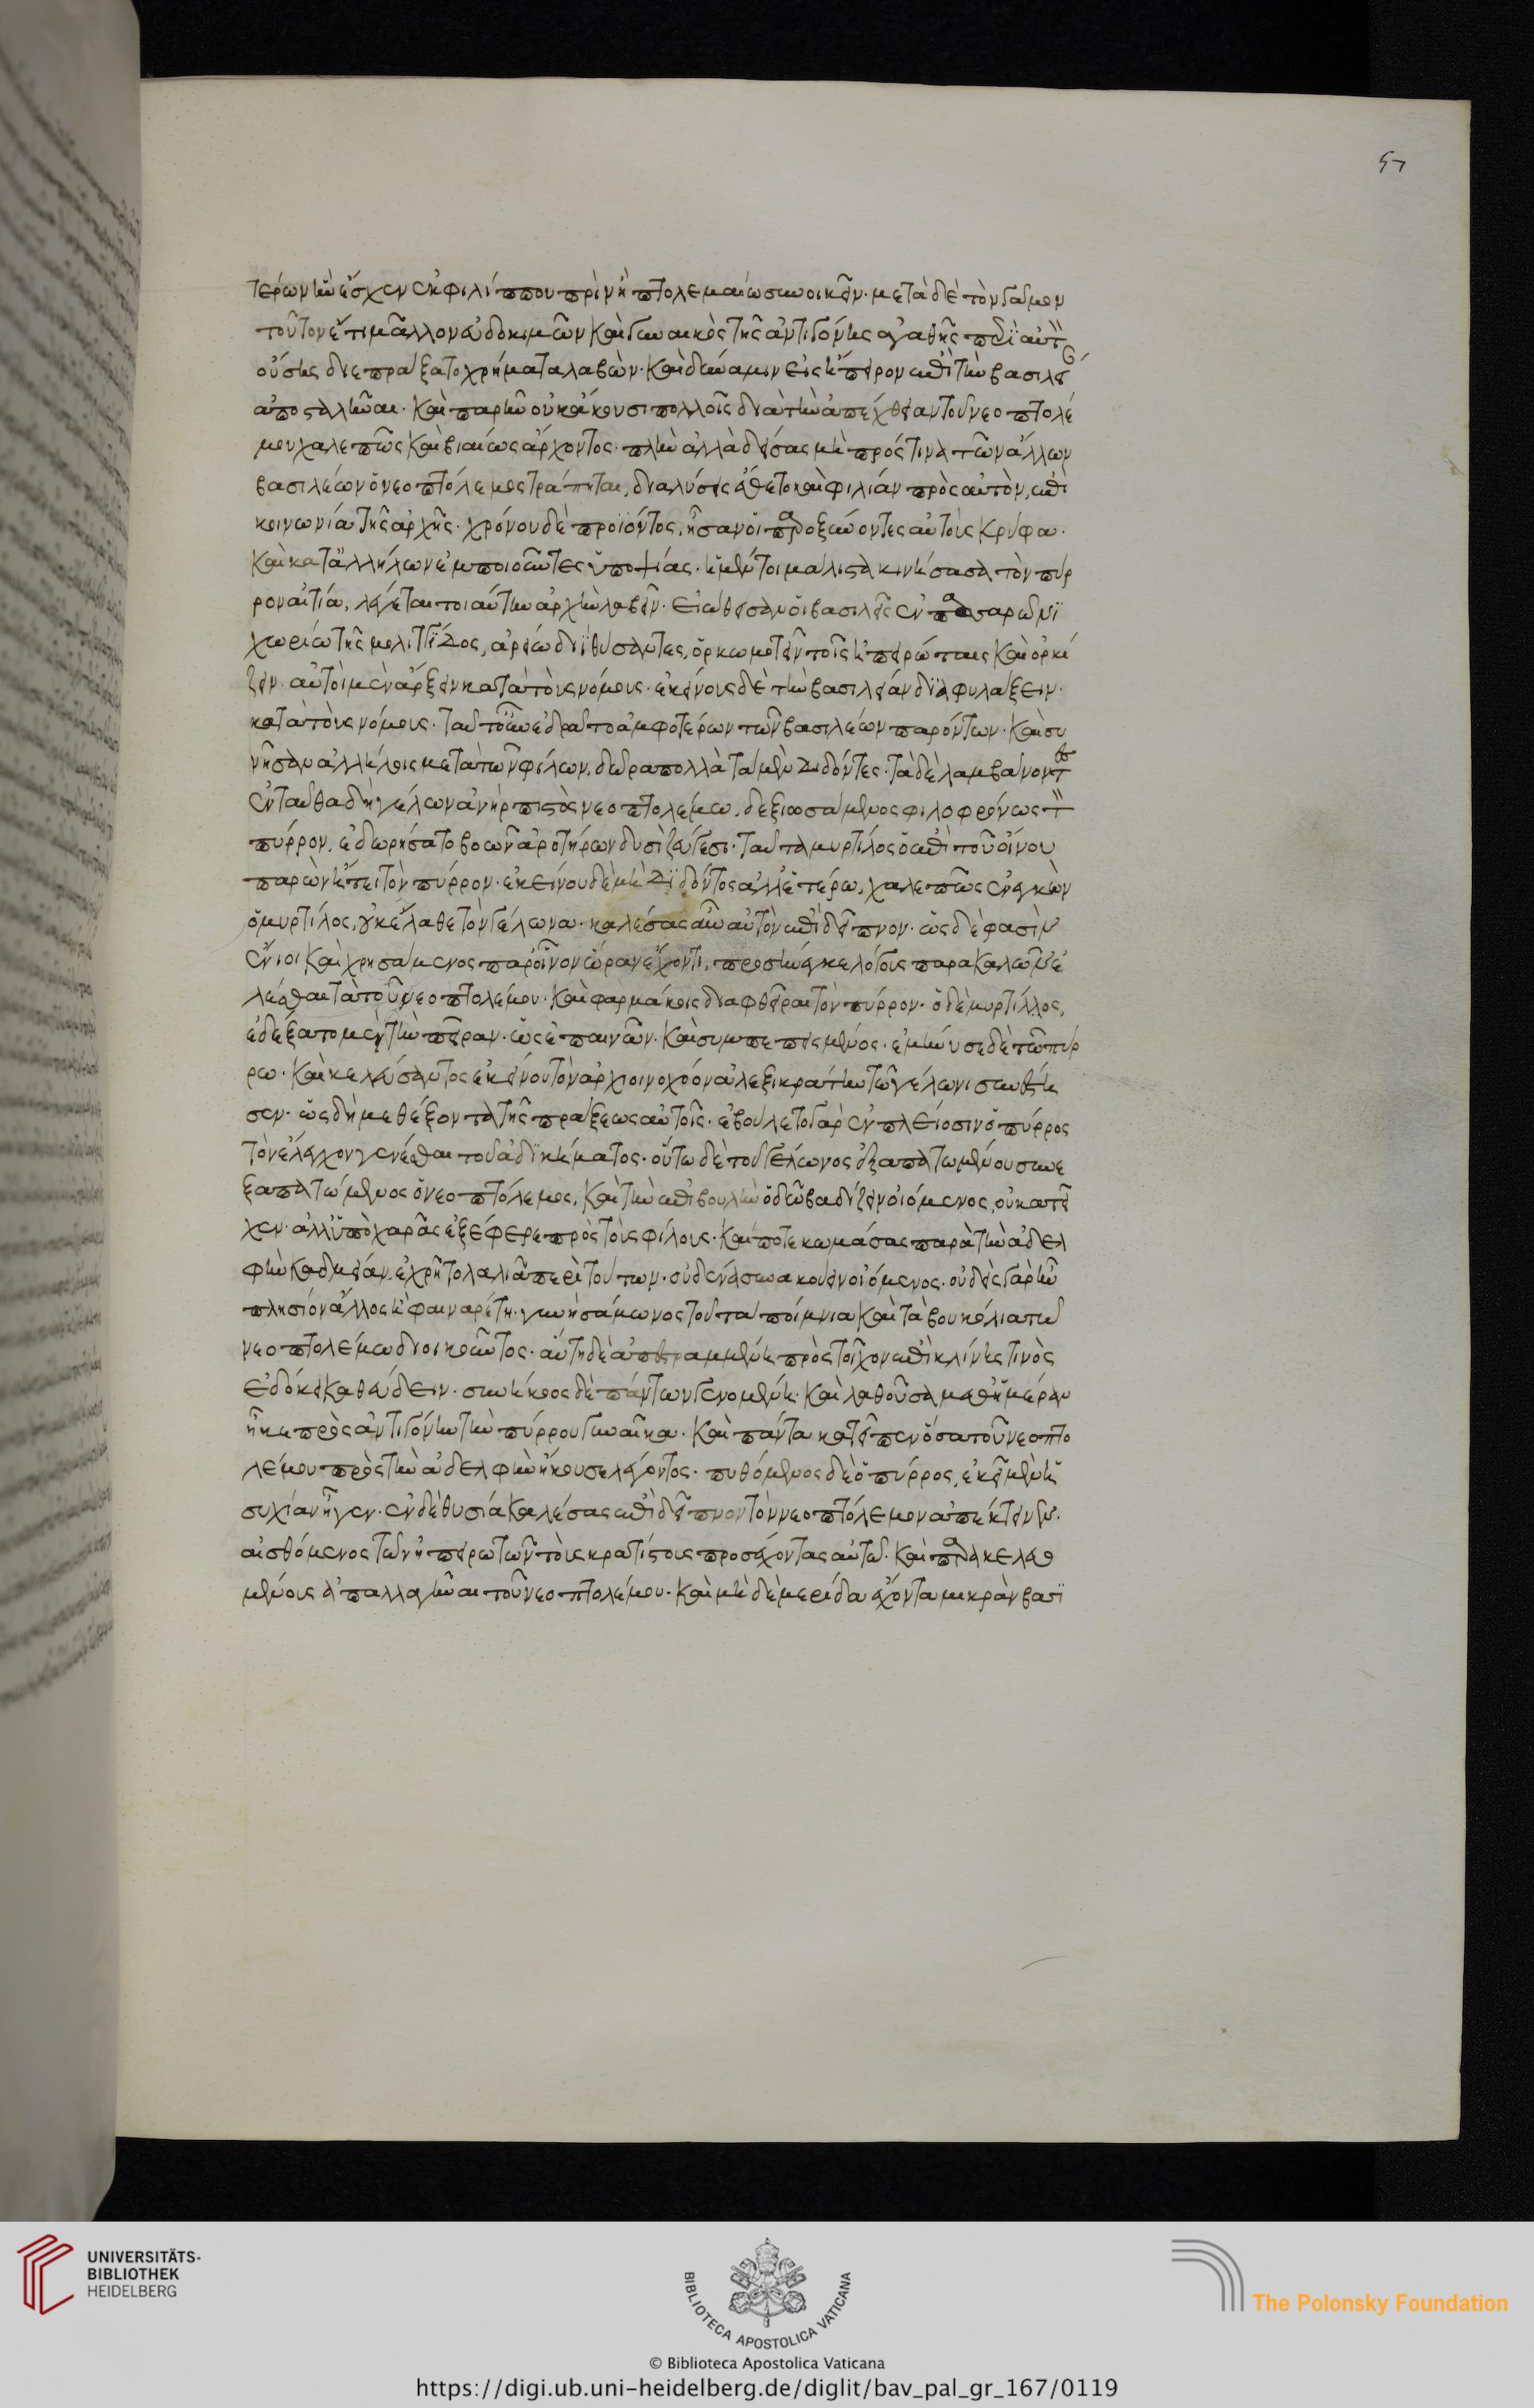 τέρων ἣν ἔσχεν ἐκ φιλίππου πρὶν ἢ πτολεμαίω συνοικεῖν· μετὰ δὲ τὸν γάμον
τοῦτον ἔτι μᾶλλον εὐδοκιμῶν καὶ γυναικὸς τῆς ἀντιγόνης ἀγαθῆς περὶ αὐτὸν
οὔσης διεπράξατο χρήματα λαβὼν· καὶ δύναμιν εἰς ἤπειρον ἐπὶ τὴν βασιλεί
ἀποσταλῆναι· καὶ παρῆν οὐκ ἄκουσι πολλοῖς διὰ τὴν ἀπέχθειαν τοῦ νεοπτολέ
μου χαλεπῶς καὶ βιαίως ἄρχοντος· πλὴν ἀλλὰ δείσας μὴ πρός τινα τῶν ἄλλων
βασιλέων ὁ νεοπτόλεμος τράπηται, διαλύσεις ἔθετο καὶ φιλίαν πρὸς αὐτὸν, ἐπὶ
κοινωνία τῆς ἀρχῆς· χρόνου δὲ προϊόντος, ἦσαν οἱ παροξύνοντες αὐτοὺς κρύφα·
καὶ κατ' ἀλλήλων ἐμποιοῦντες ὑποψίας· ἡ μέντοι μάλιστα κινήσασα τὸν πύρ
ρον αἰτία, λέγεται τοιαύτην ἀρχὴν λαβεῖν· εἰώθεισαν οἱ βασιλεῖς ἐν πασσαρῶνι
χωρίω τῆς μολιττίδος, ἀρείω διὶ θύσαντες, ὁρκωμοτεῖν τοῖς ἠπειρώταις καὶ ὁρκί
ζειν· αὐτοὶ μὲν ἄρξειν κατὰ τοὺς νόμους· ἐκείνους δὲ τὴν βασιλείαν διαφυλάξειν·
κατὰ τοὺς νόμους· ταῦτ' οὖν ἐδρᾶτο ἀμφοτέρων τῶν βασιλέων παρόντων· καὶ συ
νῆσαν ἀλλήλοις μετὰ τῶν φίλων, δῶρα πολλὰ τὰ μὲν διδόντες· τὰ δὲ λαμβάνοντες
ἐνταῦθα δὴ γέλων ἀνὴρ πιστὸς νεοπτολέμω, δεξιωσάμενος φιλοφρόνως τὸν
πύρρον, ἐδωρήσατο βοῶν ἀροτήρων δυσὶ ζεύγεσι· ταῦτα μυρτίλος ὁ ἐπὶ τοῦ οἴνου
παρὼν ἤτει τὸν πύρρον· ἐκείνου δὲ μὴ διδόντος ἀλλ' ἑτέρω, χαλεπῶς ἐνεγκὼν
ὁ μυρτίλος, οὐκ ἔλαθε τὸν γέλωνα· καλέσας οὖν αὐτὸν ἐπὶ δεῖπνον· ὡς δέ φασιν
ἔνιοι καὶ χρησάμενος παρ' οἶνον ὥραν ἔχοντι, προσήνεγκε λόγους παρακαλῶν ἑ
λέσθαι τὰ τοῦ νεοπτολέμου· καὶ φαρμάκοις διαφθεῖραι τὸν πύρρον· ὁ δὲ μυρτίλλος,
ἐδέξατο μὲν τὴν πεῖραν· ὡς ἐπαινῶν· καὶ συμπεπεισμένος· ἐμήνυσε δὲ τῶ πύρ
ρω· καὶ κελεύσαντος ἐκείνου τὸν ἀρχιοινοχόον ἀλεξικράτην τῶ γέλωνι συνέστη
σεν· ὡς δὴ μεθέξοντα τῆς πράξεως αὐτοῖς· ἐβούλετο γὰρ ἐν πλείοσιν ὁ πύρρος
τὸν ἔλεγχον γενέσθαι τοῦ ἀδικήματος· οὕτω δὲ τοῦ γέλωνος ἐξαπατωμένου συνε
ξαπατώμενος ὁ νεοπτόλεμος, καὶ τὴν ἐπιβουλὴν ὁδῶ βαδίζειν οἰόμενος, οὐ κατεῖ
χεν· ἀλλ' ὑπὸ χαρᾶς ἐξέφερε πρὸς τοὺς φίλους· καί ποτε κωμάσας παρὰ τὴν ἀδελ
φὴν καδμείαν, ἐχρῆτο λαλιᾶ περὶ τούτων· οὐδένα συνακούειν οἰόμενος· οὐδεὶς γὰρ ἦν
πλησίον ἄλλος ἢ φαιναρέτη· γυνὴ σάμωνος τοῦ τὰ ποίμνια καὶ τὰ βουκόλια τῶ
νεοπτολέμω διοικοῦντος· αὕτη δὲ ἀπεστραμμένη πρὸς τοῖχον ἐπὶ κλίνης τινὸς
ἐδόκει καθεύδειν· συνήκοος δὲ πάντων γενομένη· καὶ λαθοῦσα μεθ' ἡμέραν
ἧκε πρὸς ἀντιγόνην τὴν πύρρου γυναῖκα· καὶ πάντα κατεῖπεν ὅσα τοῦ νεοπτο
λέμου πρὸς τὴν ἀδελφὴν ἤκουσε λέγοντος· πυθόμενος δὲ ὁ πύρρος, ἐκεῖ μὲν ἡ
συχίαν ἦγεν· ἐν δὲ θυσία καλέσας ἐπὶ δεῖπνον τὸν νεοπτόλεμον ἀπέκτεινεν·
αἰσθόμενος τῶν ἠπειρωτῶν τοὺς κρατίστους προσέχοντας αὐτῶ· καὶ παρακελευο
μένους ἀπαλλαγῆναι τοῦ νεοπτολέμου· καὶ μὴ δὲ μερίδα ἔχοντα μικρὰν βασι
57
UNIVERSITÄTS-
BIBLIOTHEK
HEIDELBERG
BIBLIOTECA APOSTOLICA VATICANA
The Polonsky Foundation
© Biblioteca Apostolica Vaticana
https://digi.ub.uni-heidelberg.de/diglit/bav_pal_gr_167/0119